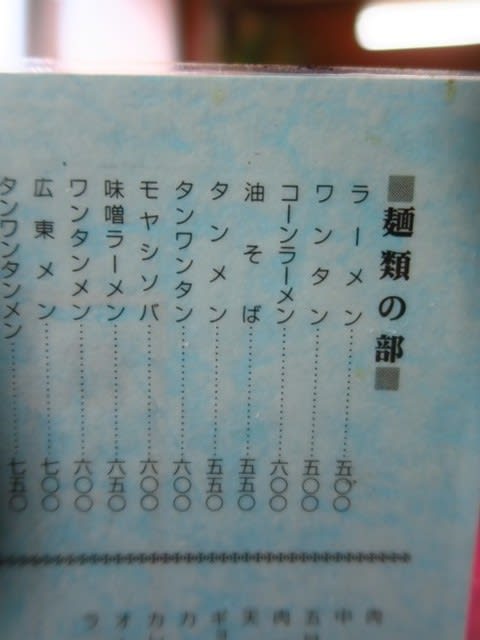 麺類の部
ラーメン………五〇〇
ワンタン………五〇〇
コーンラーメン………六〇〇
油そば………五五〇
タンメン………五五〇
タンワンタン………六〇〇
モヤシソバ………六〇〇
味噌ラーメン………六五〇
ワンタンメン………六〇〇
広東メン………七〇〇
タンワンタンメン………七五〇
肉
中
五
肉
天
ギョ
カ
カ
オ
ラ